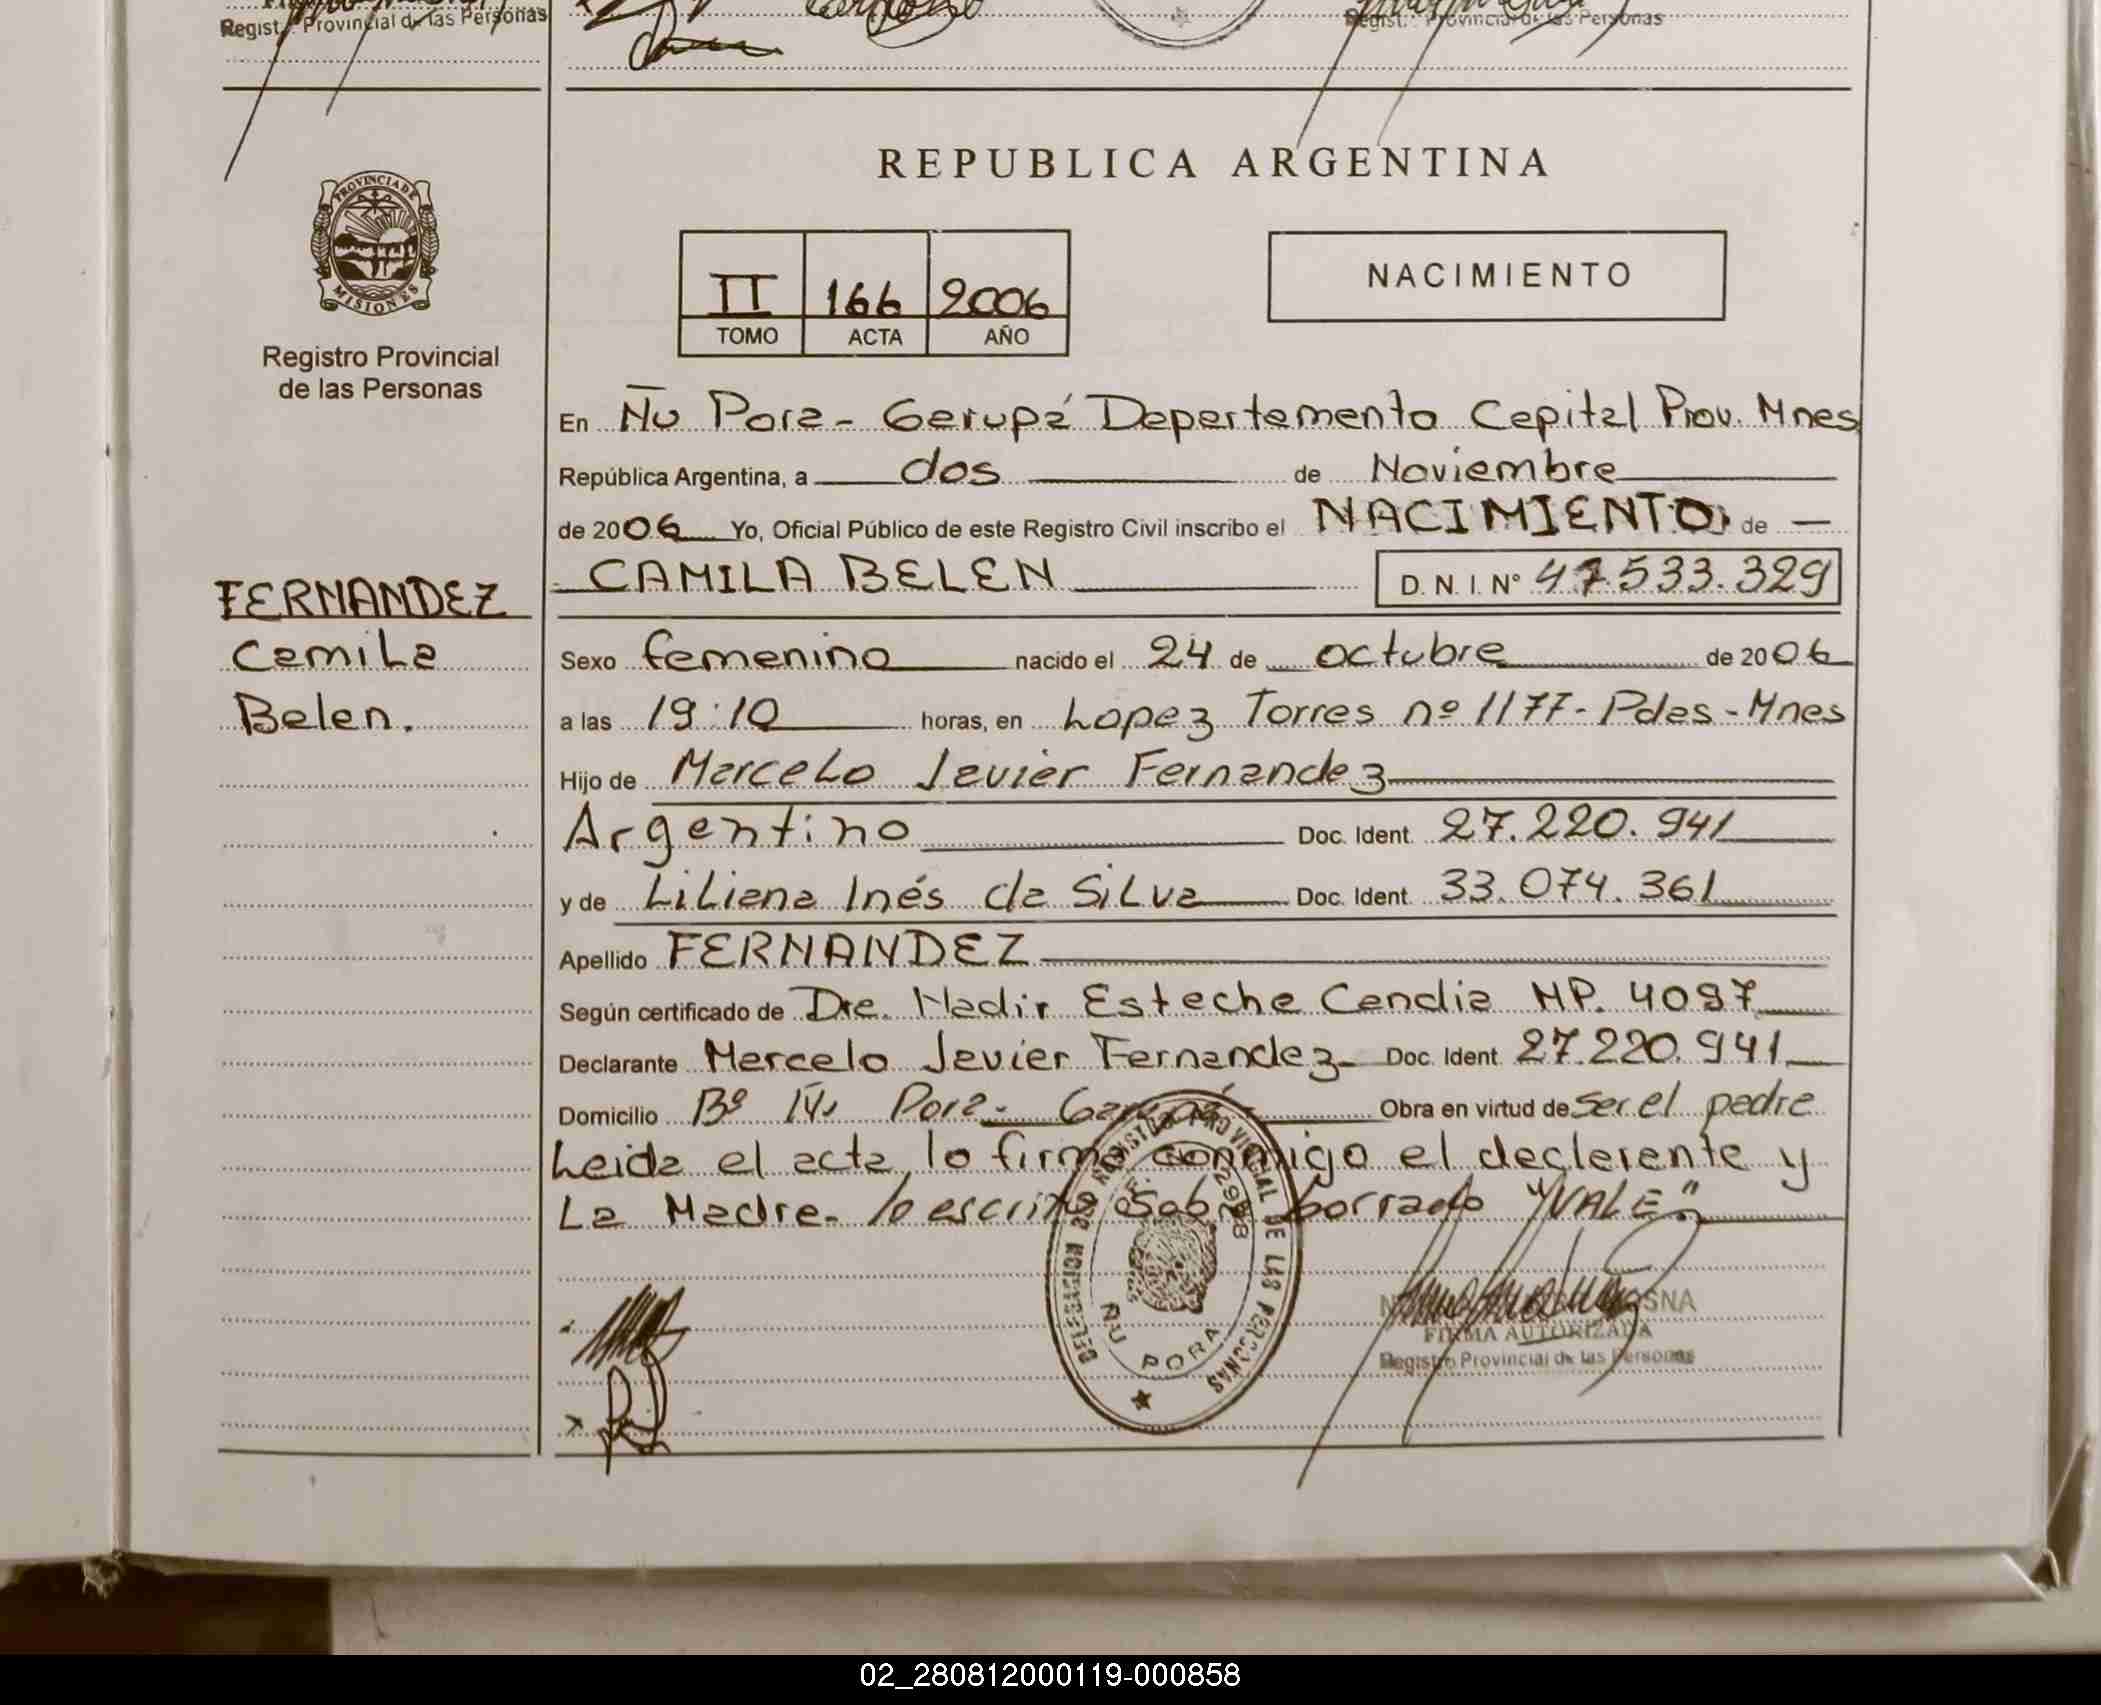 Regist. Provincial de las Personas
Regist. Provincial de las Personas
REPUBLICA ARGENTINA
PROVINCIA DE
MISIONES
Registro Provincial
de las Personas
II 166 2006
TOMO ACTA AÑO
NACIMIENTO
En Ñu Pora - Garupá Departamento Capital Prov. Mnes
República Argentina, a dos de Noviembre
de 2006 Yo, Oficial Público de este Registro Civil inscribo el NACIMIENTO de
CAMILA BELEN D. N. I. Nº 47.533.329
FERNANDEZ
Camila
Belen.
Sexo femenino nacido el 24 de octubre de 2006
a las 19:10 horas, en Lopez Torres nº 1177 - Pdas - Mnes
Hijo de Marcelo Javier Fernandez
Argentino Doc. Ident. 27.220.941
y de Liliana Inés da Silva Doc. Ident. 33.074.361
Apellido FERNANDEZ
Según certificado de Dra. Nadir Esteche Candia MP. 4097
Declarante Marcelo Javier Fernandez - Doc. Ident. 27.220.941
Domicilio Bº Ñu Pora - Garupá - Obra en virtud de ser el padre
Leida el acta, lo firma conmigo el declarante y
La Madre - lo escrito sob borrado "VALE".
DELEGACION REGISTRO PROVINCIAL DE LAS PERSONAS
ÑU PORA
FIRMA AUTORIZADA
Registro Provincial de las Personas
02_280812000119-000858